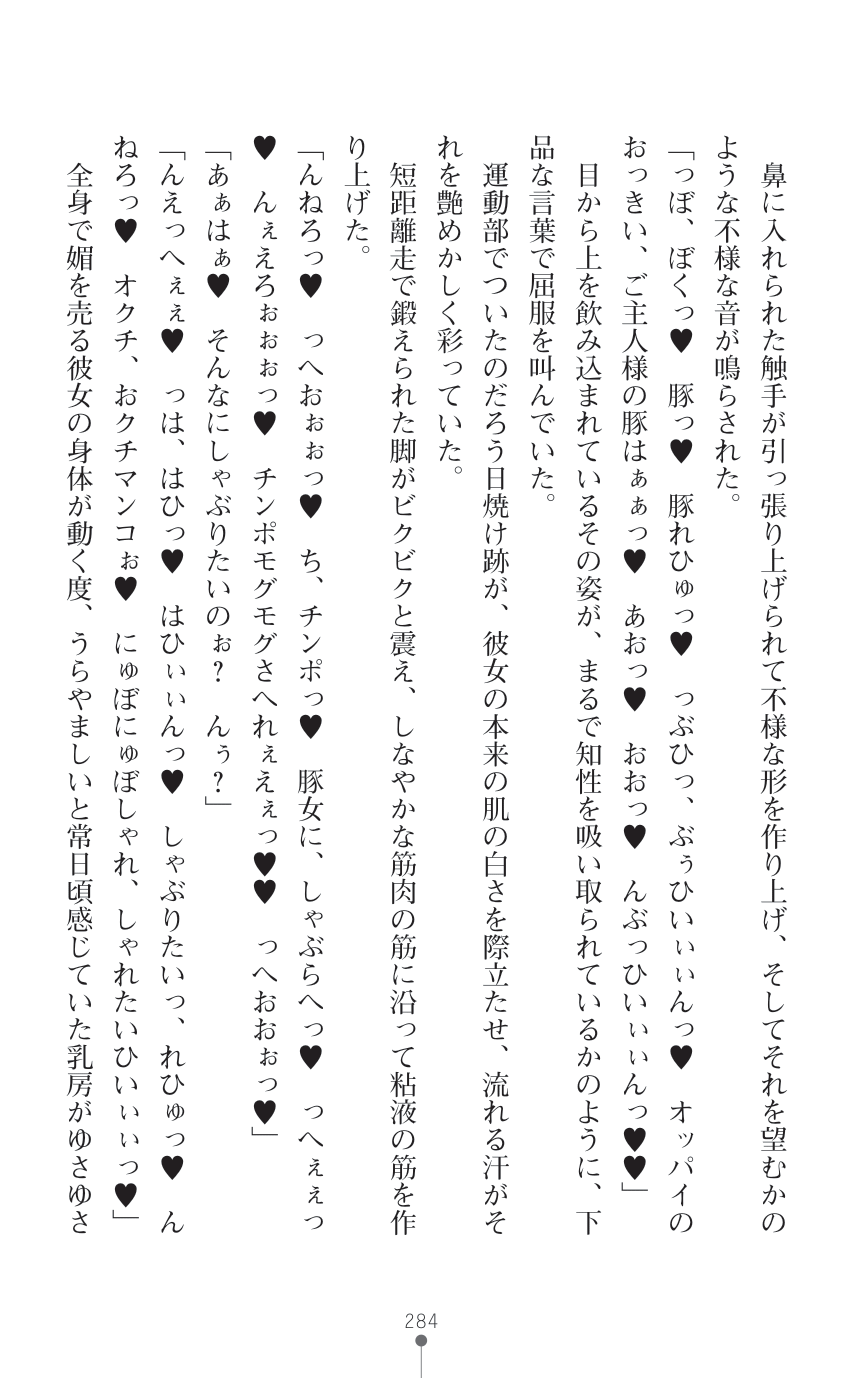 鼻に入れられた触手が引っ張り上げられて不様な形を作り上げ、そしてそれを望むかの
ような不様な音が鳴らされた。
「っぼ、ぼくっ♥　豚っ♥　豚れひゅっ♥　っぶひっ、ぶぅひいぃぃんっ♥　オッパイの
おっきい、ご主人様の豚はぁぁっ♥　あおっ♥　おおっ♥　んぶっひいぃぃんっ♥♥」
目から上を飲み込まれているその姿が、まるで知性を吸い取られているかのように、下
品な言葉で屈服を叫んでいた。
運動部でついたのだろう日焼け跡が、彼女の本来の肌の白さを際立たせ、流れる汗がそ
れを艶めかしく彩っていた。
短距離走で鍛えられた脚がビクビクと震え、しなやかな筋肉の筋に沿って粘液の筋を作
り上げた。
「んねろっ♥　っへおぉぉっ♥　ち、チンポっ♥　豚女に、しゃぶらへっ♥　っへぇぇっ
♥　んぇえろぉぉぉっ♥　チンポモグモグさへれぇえぇっ♥♥　っへおおぉっ♥」
「あぁはぁ♥　そんなにしゃぶりたいのぉ？　んぅ？」
「んえっへぇぇ♥　っは、はひっ♥　はひぃぃんっ♥　しゃぶりたいっ、れひゅっ♥　ん
ねろっ♥　オクチ、おクチマンコぉ♥　にゅぼにゅぼしゃれ、しゃれたいひいぃぃっ♥」
全身で媚を売る彼女の身体が動く度、うらやましいと常日頃感じていた乳房がゆさゆさ
284